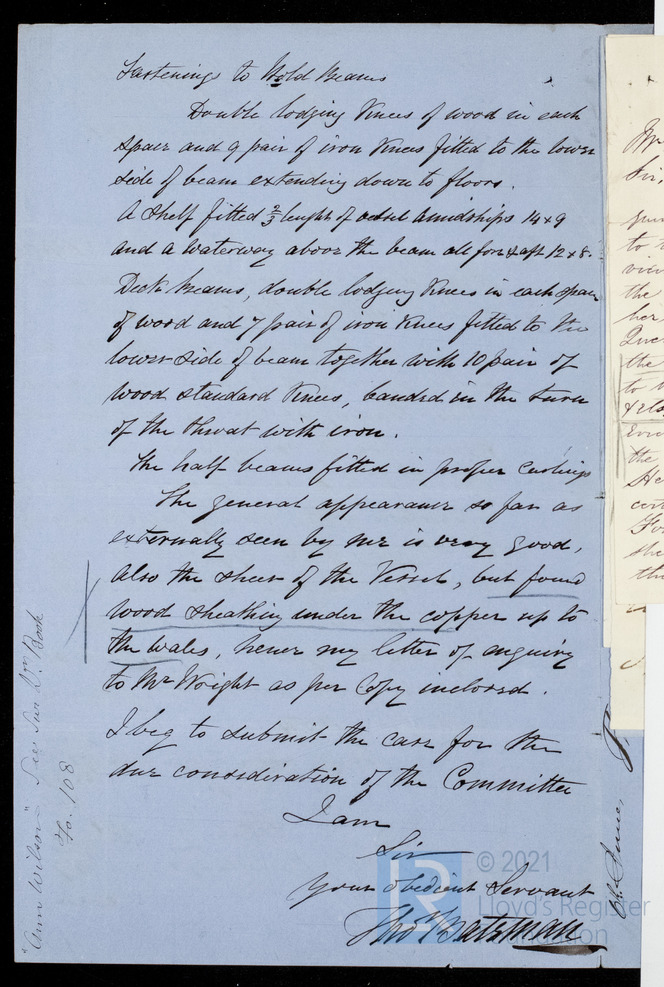 Fastenings to Hold Beams
Double lodging Knees of wood in each
spair and 9 pair of iron Knees fitted to the lower
side of beam extending down to floors.
A Shelf fitted 2/3 lenght of vessel Amidships 14 x 9
and a Waterway above the beam all fore & aft 12 x 8.
Deck Beams, double lodging Knees in each spair
of wood and 7 pair of iron Knees fitted to the
lower side of beam together with 10 pair of
wood standard Knees, banded in the turn
of the throat with iron.
The half beams fitted in proper Carlings
The general appearance so far as
externally seen by me is very good,
Also the sheer of the Vessel, but found
wood sheathing under the copper up to
the wales, hence my letter of enquiry
to Mr Wright as per Copy inclosed.
I beg to submit the case for the
due consideration of the Committee
I am
Sir
your obedient Servant
Thos Bateman
"Ann Wilson" See Sur Book
Fo. 108
© 2021
Lloyd's Register
Foundation
Sir,
to
the
her
the
to
the
the